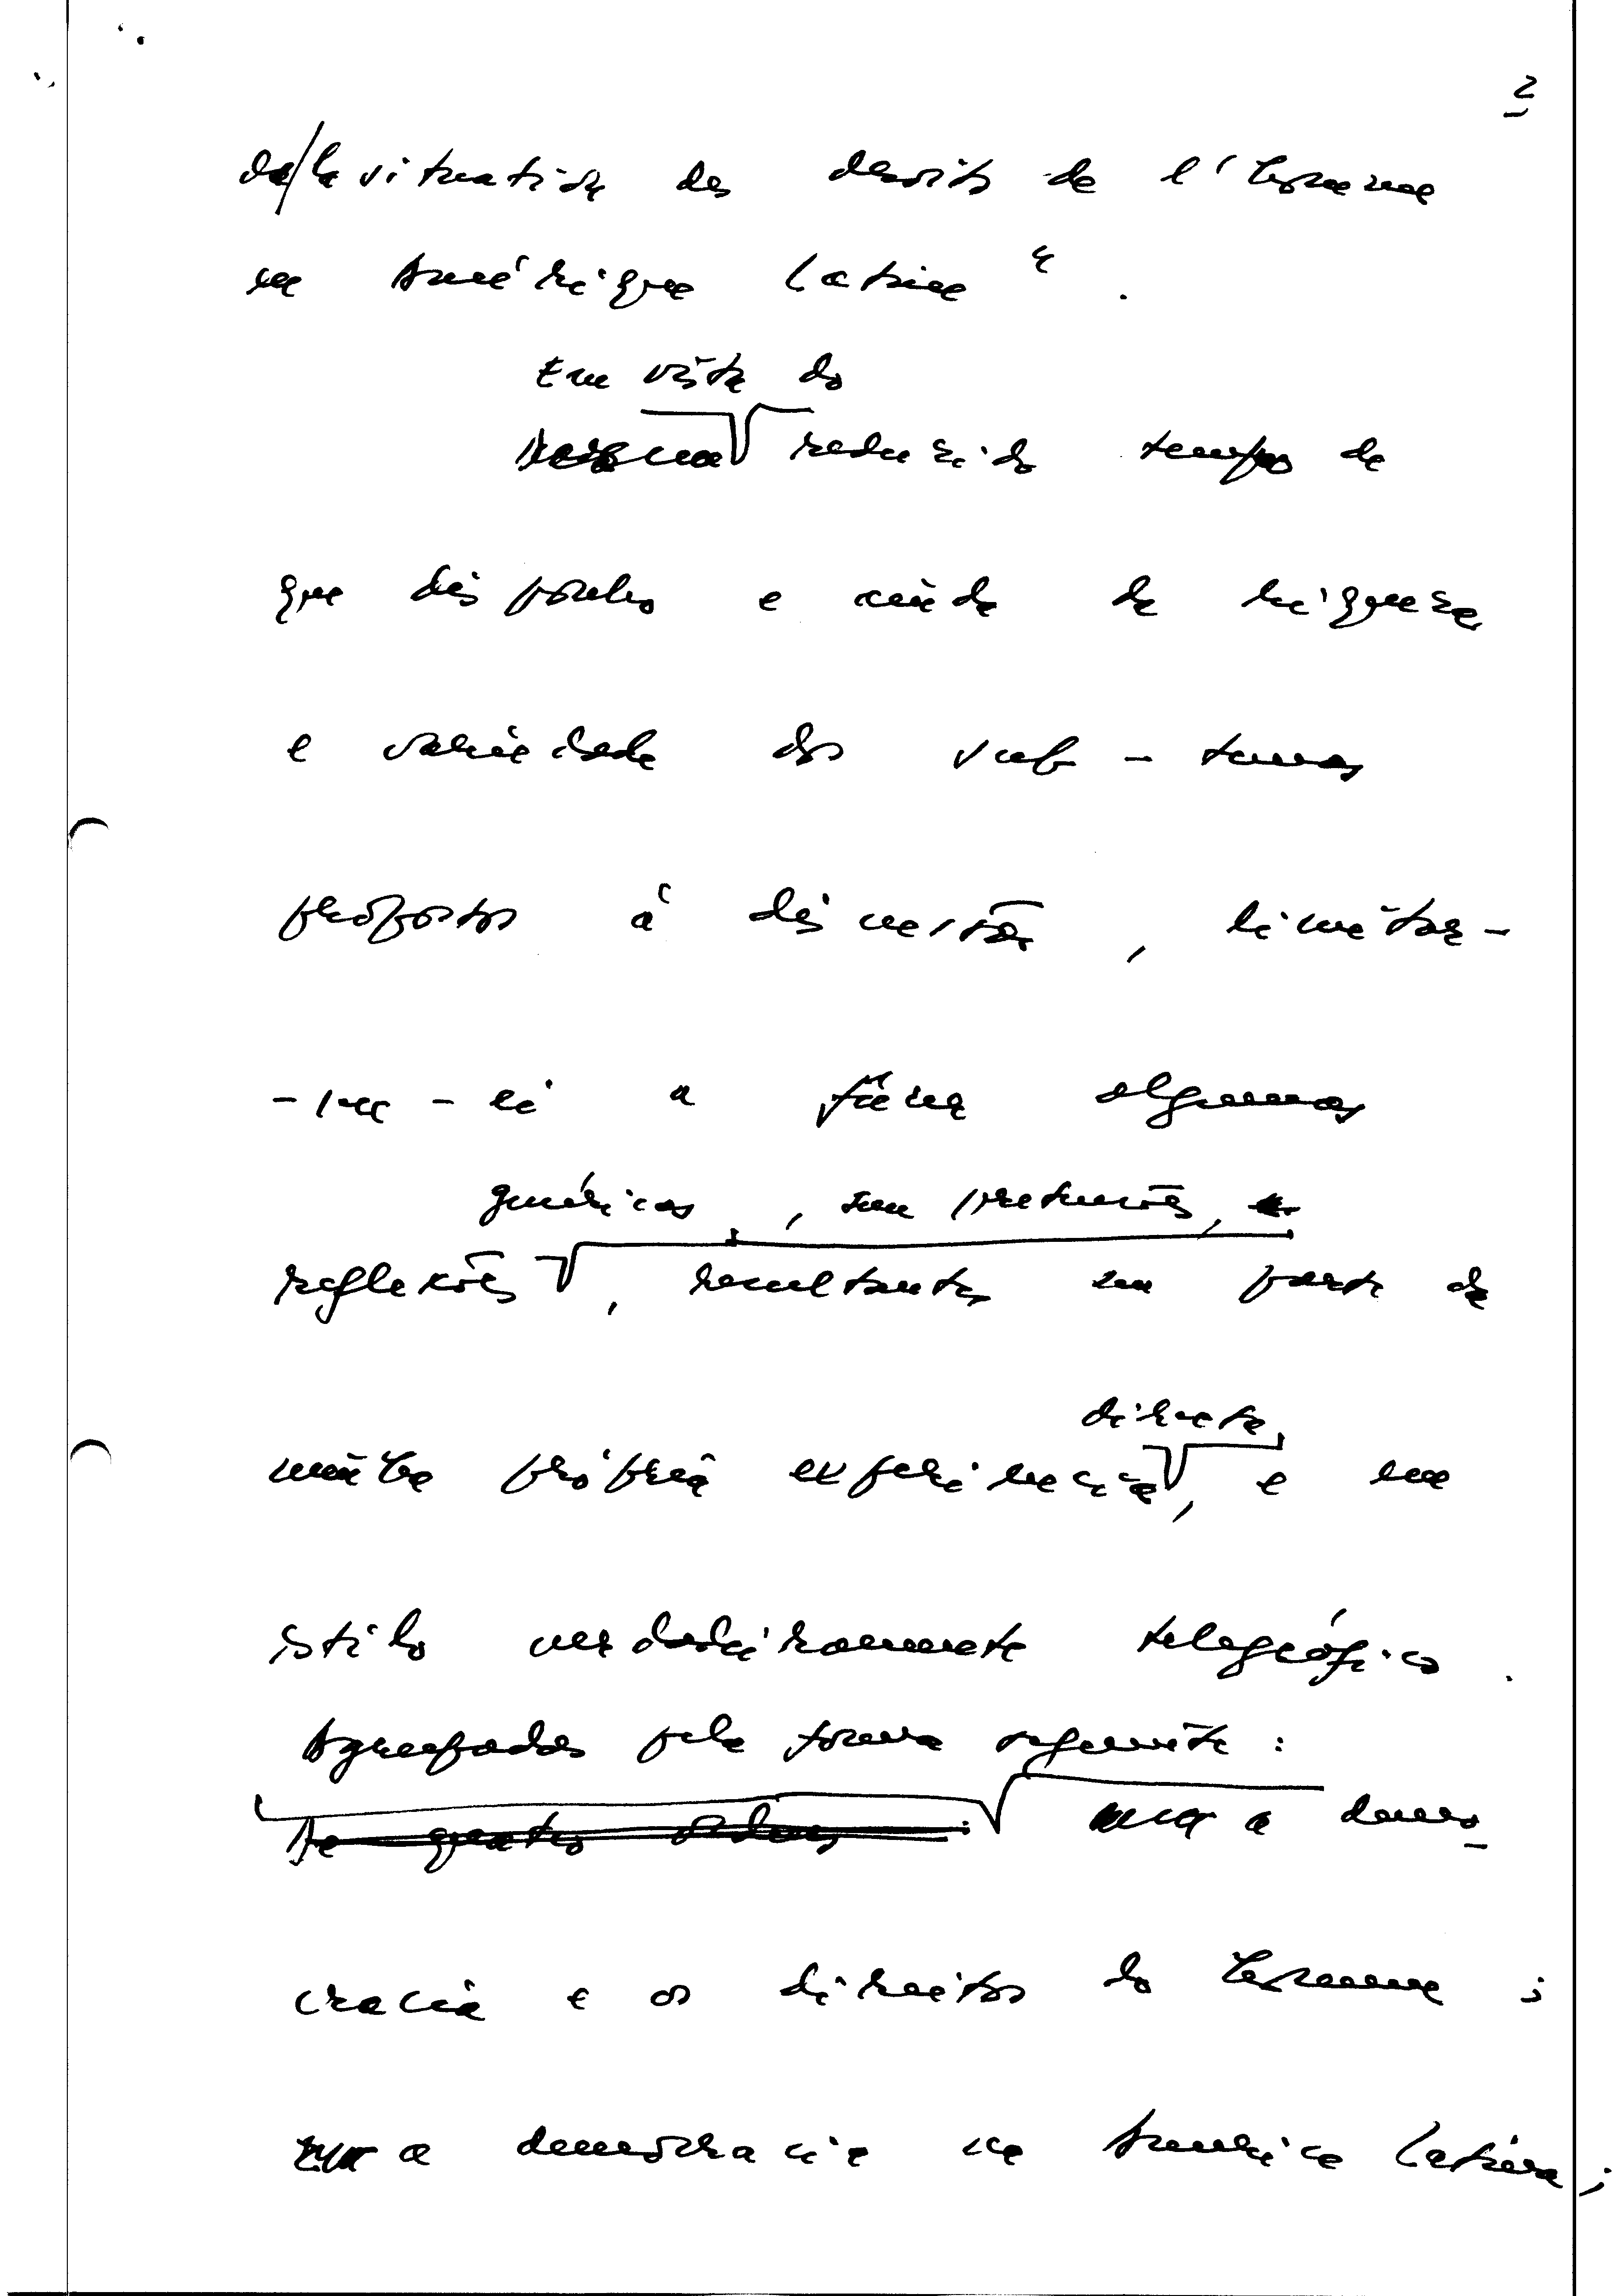 2
de/la situation des droits de l'homme
en Amérique Latine".
Em vista do
reduzido tempo de
que disponho e ainda da riqueza
e variedade dos sub-temas
propostos à discussão, limitar-
-me-ei a fazer algumas
genéricas, sem pretensões,
reflexões, resultantes em parte da
minha própria experiência, e em
directa,
estilo verdadeiramente telegráfico.
Agrupadas pela forma seguinte:
De quatro ordens: a demo-
cracia e os direitos do homem;
a democracia na América Latina;